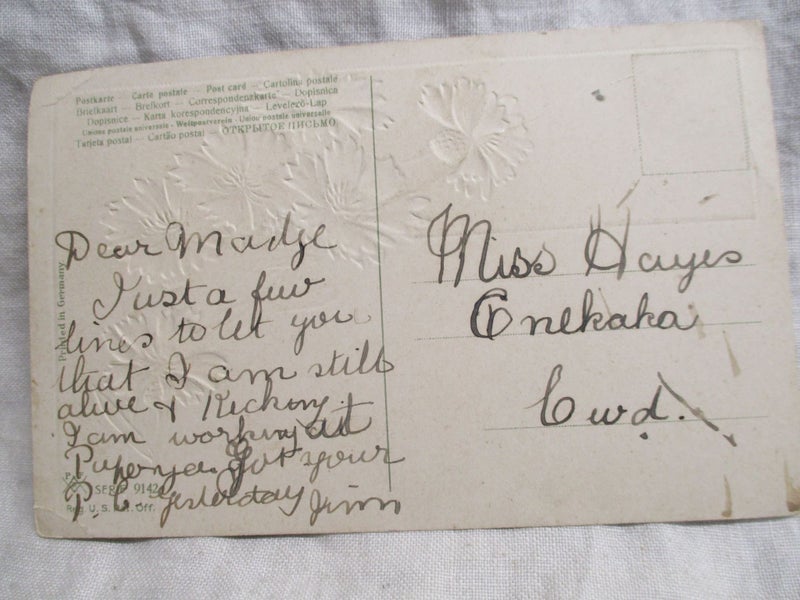 Postkarte — Carte postale — Post card — Cartolina postale
Briefkaart — Brefkort — Correspondenzkarte — Dopisnica
Dopisnice — Karta korespondencyjna — Levelező-Lap
Union postale universelle - Weltpostverein - Union postale universelle
Tarjeta postal — Cartão postal — ОТКРЫТОЕ ПИСЬМО
Printed in Germany
Dear Madge
Just a few
lines to let you
that I am still
alive & Kicking.
I am working at
got your
P.C yesterday Jimm
SERIE 9142
Reg. U.S. Pat. Off.
Miss Hayes
Onekaka
Cwd.